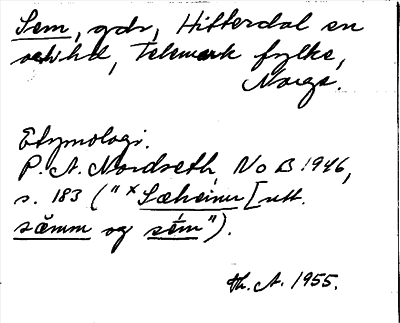 Sem, gdr, Hitterdal sn
och hd, Telemark fylke,
Norge.
Etymologi.
P. A. Nordseth, NoB 1946,
s. 183 ("ˣSæheimr [utt.
sæ̆mm og sém").
Th. A. 1955.